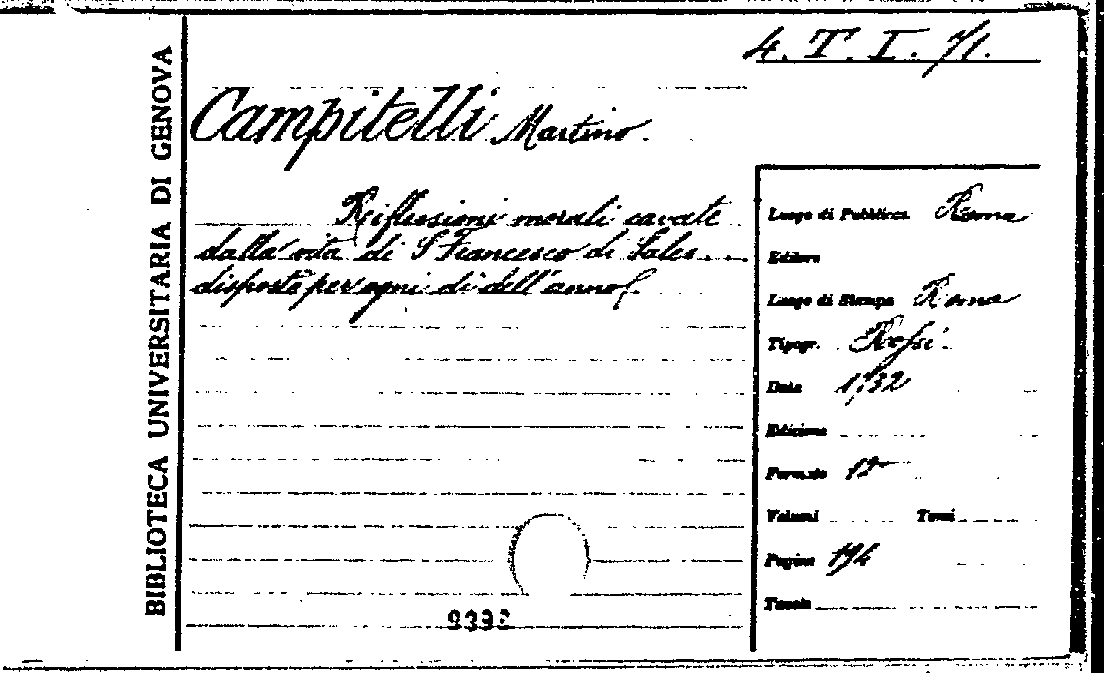 4. T. I. 71.
BIBLIOTECA UNIVERSITARIA DI GENOVA
Campitelli Martino.
Riflessioni morali cavate
dalla vita di S Francesco di Sales....
disposte per ogni dì dell'anno.
Luogo di Pubblicaz. Roma
Editore
Luogo di Stampa Roma
Tipogr. Rossi.
Data 1732
Edizione
Formato 12º
Volumi Tomi
Pagine 194
Tavole